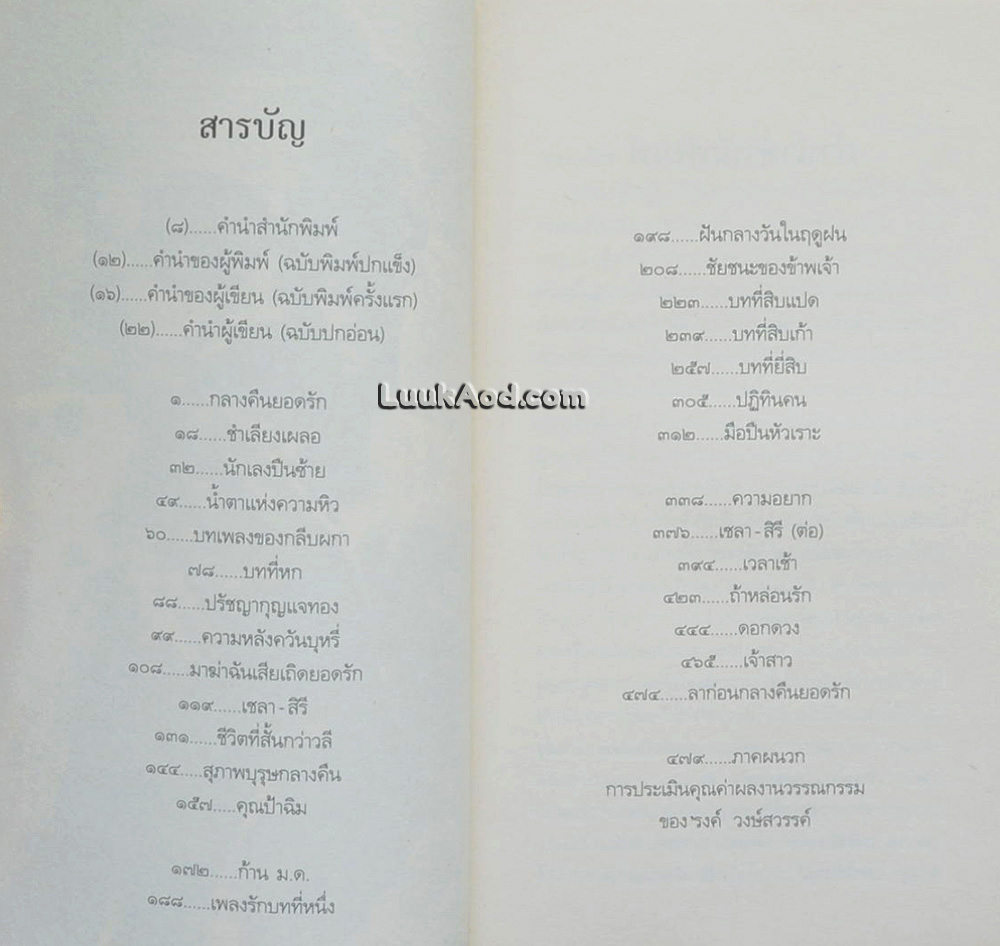 สารบัญ
(๘)......คำนำสำนักพิมพ์
(๑๒)......คำนำของผู้พิมพ์ (ฉบับพิมพ์ปกแข็ง)
(๑๖)......คำนำของผู้เขียน (ฉบับพิมพ์ครั้งแรก)
(๒๒)......คำนำผู้เขียน (ฉบับปกอ่อน)
๑......กลางคืนยอดรัก
๑๘......ชำเลียงเผลอ
๓๒......นักเลงปืนซ้าย
๔๙......น้ำตาแห่งความหิว
๖๐......บทเพลงของกลีบผกา
๗๘......บทที่หก
๘๘......ปรัชญากุญแจทอง
๙๙......ความหลังควันบุหรี่
๑๐๘......มาฆ่าฉันเสียเถิดยอดรัก
๑๑๙......เชลา - สิรี
๑๓๑......ชีวิตที่สั้นกว่าวลี
๑๔๔......สุภาพบุรุษกลางคืน
๑๕๗.....คุณป้าฉิม
๑๗๒......ก้าน ม.ด.
๑๘๘......เพลงรักบทที่หนึ่ง
๑๙๘......ฝันกลางวันในฤดูฝน
๒๐๘......ชัยชนะของข้าพเจ้า
๒๒๓......บทที่สิบแปด
๒๓๙......บทที่สิบเก้า
๒๕๗......บทที่ยี่สิบ
๓๐๕......ปฏิทินคน
๓๑๒......มือปืนหัวเราะ
๓๓๘......ความอยาก
๓๗๖......เชลา - สิรี (ต่อ)
๓๙๔......เวลาเช้า
๔๒๓......ถ้าหล่อนรัก
๔๔๔......ดอกดวง
๔๖๕......เจ้าสาว
๔๗๔......ลาก่อนกลางคืนยอดรัก
๔๗๙......ภาคผนวก
การประเมินคุณค่าผลงานวรรณกรรม
ของ 'รงค์ วงษ์สวรรค์
LuukAod.com